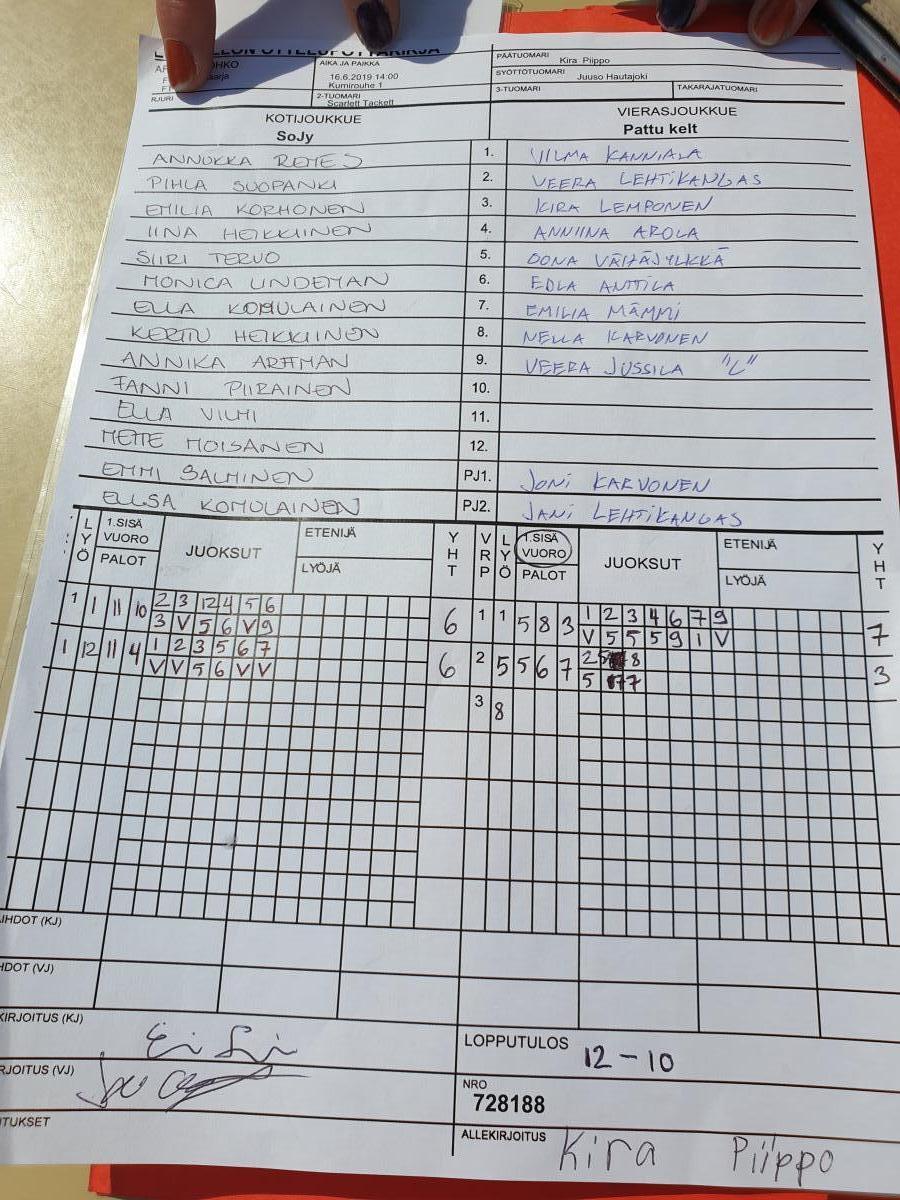 PÄÄTUOMARI Kira Piippo
AIKA JA PAIKKA
16.6.2019 14:00
Kumirouhe 1
SYÖTTÖTUOMARI Juuso Hautajoki
2-TUOMARI
Scarlett Tackett
3-TUOMARI
TAKARAJATUOMARI
RJURI
KOTIJOUKKUE
SoJy
VIERASJOUKKUE
Pattu kelt
ANNUKKA REMES 1. VILMA KANNIALA
PIHLA SUOPANKI 2. VEERA LEHTIKANGAS
EMILIA KORHONEN 3. KIRA LEMPONEN
IINA HEIKKINEN 4. ANNIINA AROLA
SIIRI TERVO 5. OONA VÄHÄJYLKKÄ
MONICA LINDEMAN 6. EDLA ANTTILA
ELLA KOMULAINEN 7. EMILIA MÄMMI
KERTTU HEIKKINEN 8. NELLA KARVONEN
ANNIKA ARFFMAN 9. VEERA JUSSILA "L"
FANNI PIIRAINEN 10.
ELLA VILMI 11.
METTE MOISANEN 12.
EMMI SALMINEN PJ1. JONI KARVONEN
ELLSA KOMULAINEN PJ2. JANI LEHTIKANGAS
LYÖ 1.SISÄ VUORO PALOT JUOKSUT ETENIJÄ LYÖJÄ YHT VRP LYÖ 1.SISÄ VUORO PALOT JUOKSUT ETENIJÄ LYÖJÄ YHT
1 1 11 10 2 3 12 4 5 6 6 1 1 5 8 3 1 2 3 4 6 7 9 7
3 V 5 6 V 9 V 5 5 5 9 1 V
1 12 11 4 1 2 3 5 6 7 6 2 5 5 6 7 2 5 8 3
V V 5 6 V V 5 7 7
3 8
IHDOT (KJ)
HDOT (VJ)
KIRJOITUS (KJ)
RJOITUS (VJ)
LOPPUTULOS 12-10
NRO
728188
TUKSET
ALLEKIRJOITUS Kira Piippo